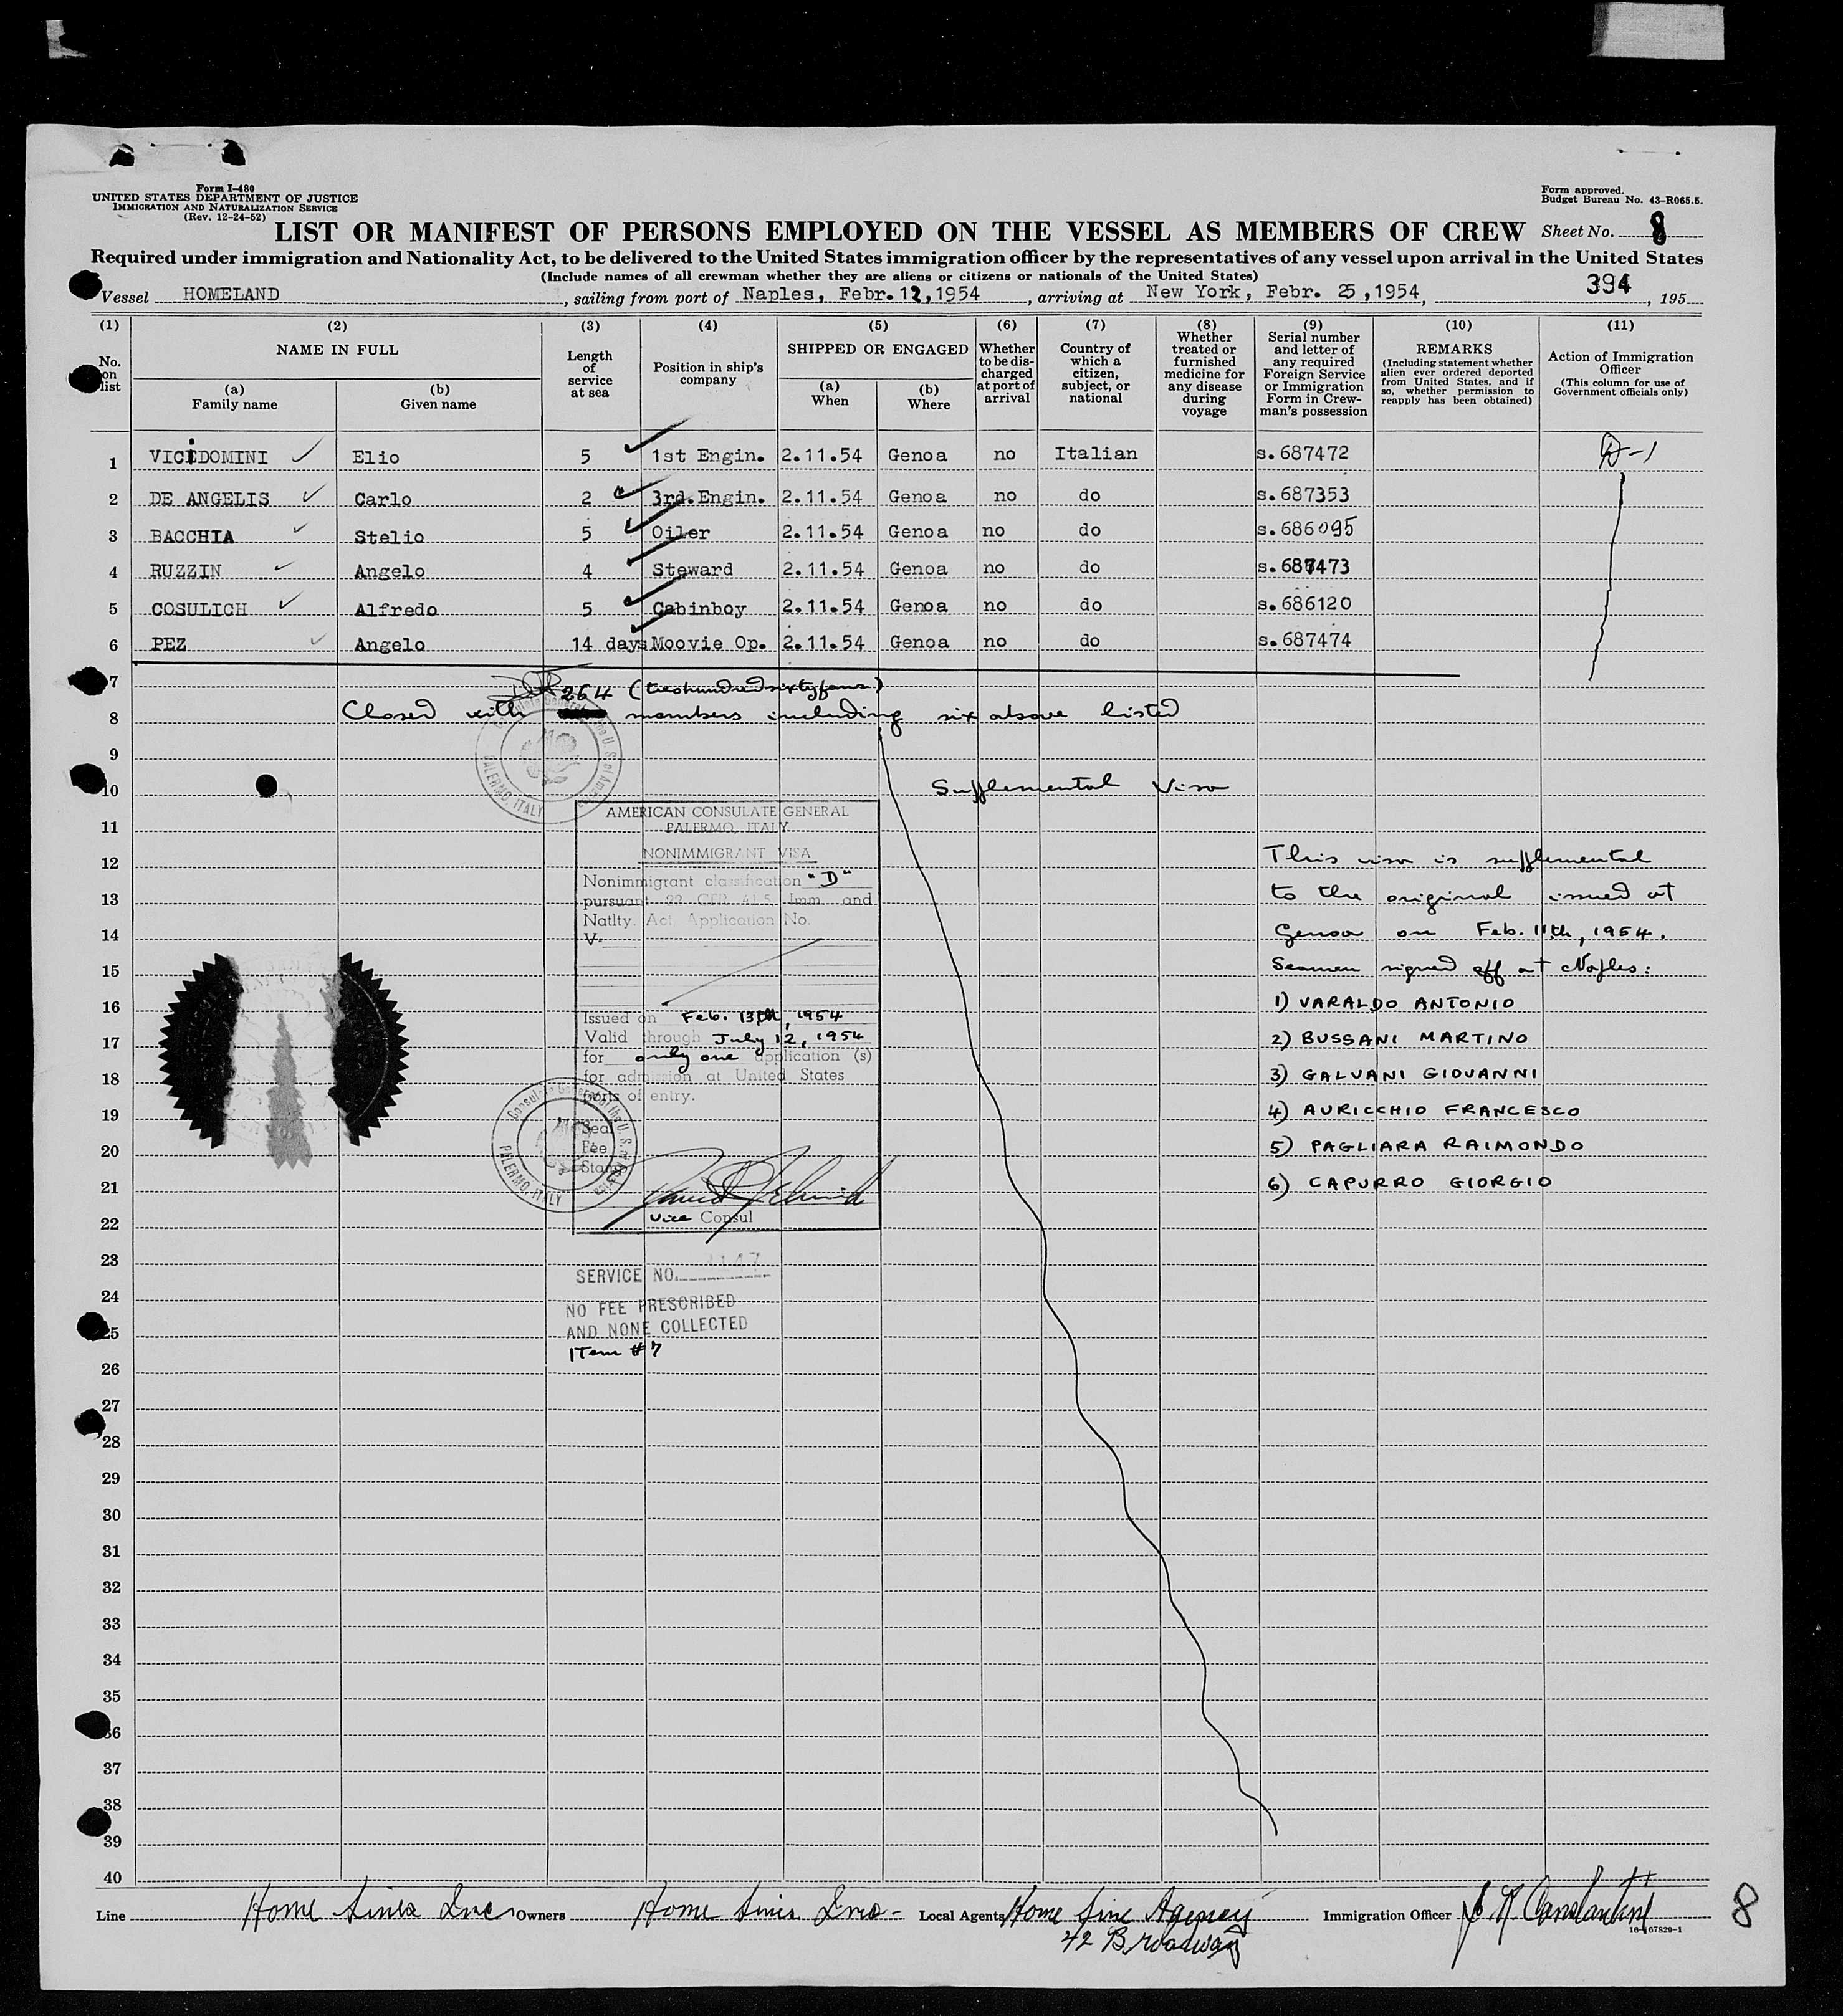 Form I-480
UNITED STATES DEPARTMENT OF JUSTICE
IMMIGRATION AND NATURALIZATION SERVICE
(Rev. 12-24-52)
Form approved.
Budget Bureau No. 43-R065.5.
LIST OR MANIFEST OF PERSONS EMPLOYED ON THE VESSEL AS MEMBERS OF CREW
Sheet No. 8
Required under immigration and Nationality Act, to be delivered to the United States immigration officer by the representatives of any vessel upon arrival in the United States
(Include names of all crewman whether they are aliens or citizens or nationals of the United States)
394
Vessel HOMELAND, sailing from port of Naples, Febr. 12, 1954, arriving at New York, Febr. 25, 1954, , 195
(1) No. on list
(2) NAME IN FULL
(a) Family name
(b) Given name
(3) Length of service at sea
(4) Position in ship's company
(5) SHIPPED OR ENGAGED
(a) When
(b) Where
(6) Whether to be discharged at port of arrival
(7) Country of which a citizen, subject, or national
(8) Whether treated or furnished medicine for any disease during voyage
(9) Serial number and letter of any required Foreign Service or Immigration Form in Crewman's possession
(10) REMARKS (Including statement whether alien ever ordered deported from United States, and if so, whether permission to reapply has been obtained)
(11) Action of Immigration Officer (This column for use of Government officials only)
1 VICIDOMINI Elio 5 1st Engin. 2.11.54 Genoa no Italian s.687472 D-1
2 DE ANGELIS Carlo 2 3rd.Engin. 2.11.54 Genoa no do s.687353
3 BACCHIA Stelio 5 Oiler 2.11.54 Genoa no do s.686095
4 RUZZIN Angelo 4 Steward 2.11.54 Genoa no do s.687473
5 COSULICH Alfredo 5 Cabinboy 2.11.54 Genoa no do s.686120
6 PEZ Angelo 14 days Moovie Op. 2.11.54 Genoa no do s.687474
7
264 (twohundredsixtyfour)
8 Closed with members including six above listed
Consulate General of the U. S. of America
PALERMO, ITALY
9
10 Supplemental Visa
11
12
13
14
15
16
17
18
19
20
21
22
23
24
25
26
27
28
29
30
31
32
33
34
35
36
37
38
39
40
AMERICAN CONSULATE GENERAL
PALERMO, ITALY
NONIMMIGRANT VISA
Nonimmigrant classification "D"
pursuant 22 CFR 41.5 Imm. and
Natlty. Act. Application No.
V-
Issued on Feb. 13th, 1954
Valid through July 12, 1954
for only one application (s)
for admission at United States
ports of entry.
Seal
Fee
Stamp
Vice Consul
Consulate General of the U. S. of America
PALERMO, ITALY
SERVICE NO.
NO FEE PRESCRIBED
AND NONE COLLECTED
Item #7
This visa is supplemental
to the original issued at
Genoa on Feb. 11th, 1954.
Seamen signed off at Naples:
1) VARALDO ANTONIO
2) BUSSANI MARTINO
3) GALVANI GIOVANNI
4) AURICCHIO FRANCESCO
5) PAGLIARA RAIMONDO
6) CAPURRO GIORGIO
Line Home Lines Inc Owners Home Lines Inc. Local Agents Home Line Agency Immigration Officer
42 Broadway
16-67829-1
8